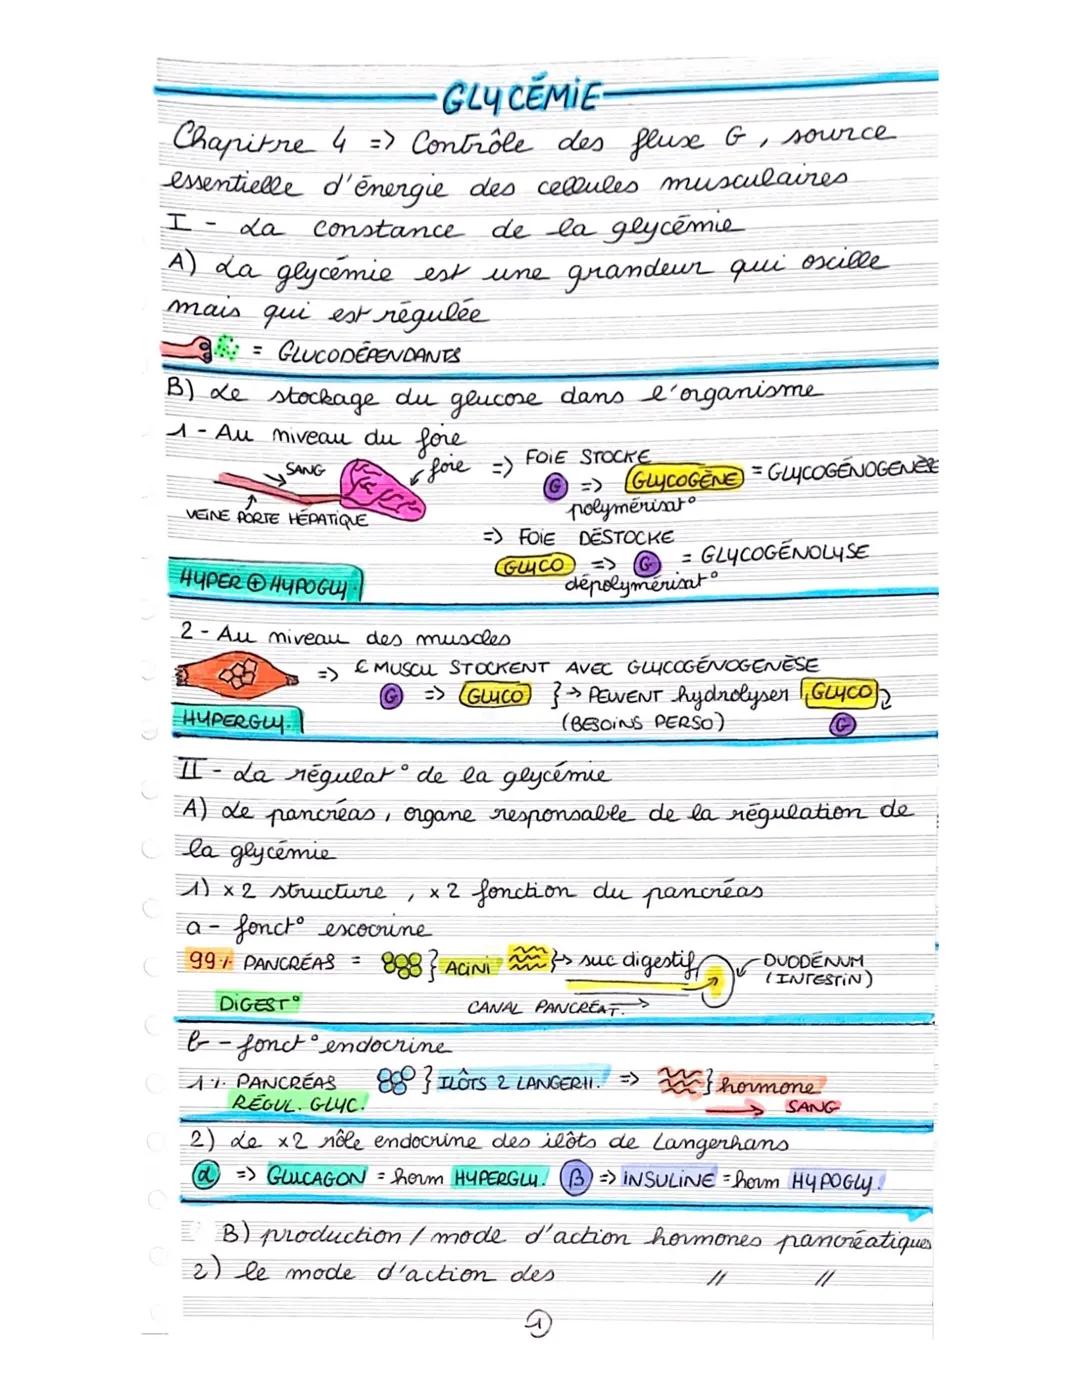 GLYCÉMIE
Chapitre 4 => Contrôle des flux G, source
essentielle d'énergie des cellules musculaires
I - La constance de la glycémie
A) La glycémie est une grandeur qui oscille
mais qui est régulée
= GLUCODÉPENDANTS
B) Le stockage du glucose dans l'organisme
1 - Au niveau du foie
SANG
foie => FOIE STOCKE
G => GLYCOGÈNE = GLYCOGÉNOGENÈSE
polymérisat°
VEINE PORTE HÉPATIQUE
=> FOIE DÉSTOCKE
GLYCO => G = GLYCOGÉNOLYSE
dépolymérisat°
HYPER ⊕ HYPOGLY.
2 - Au niveau des muscles
=> C MUSCU STOCKENT AVEC GLYCOGÉNOGENÈSE
G => GLYCO } → PEUVENT hydrolyser GLYCO
(BESOINS PERSO) G
HYPERGLY.
II - La régulat° de la glycémie
A) Le pancréas, organe responsable de la régulation de
la glycémie
1) x2 structure, x2 fonction du pancréas
a - fonct° exocrine
99% PANCRÉAS = } ACINI } → suc digestif
DUODÉNUM
(INTESTIN)
DIGEST°
CANAL PANCRÉAT. →
b - fonct° endocrine
1% PANCRÉAS } ILÔTS 2 LANGERH. => } hormone
RÉGUL. GLYC.
→ SANG
2) Le x2 rôle endocrine des ilôts de Langerhans
α => GLUCAGON = horm HYPERGLY. β => INSULINE = horm HYPOGLY.
B) production / mode d'action hormones pancréatiques
2) le mode d'action des // //
1